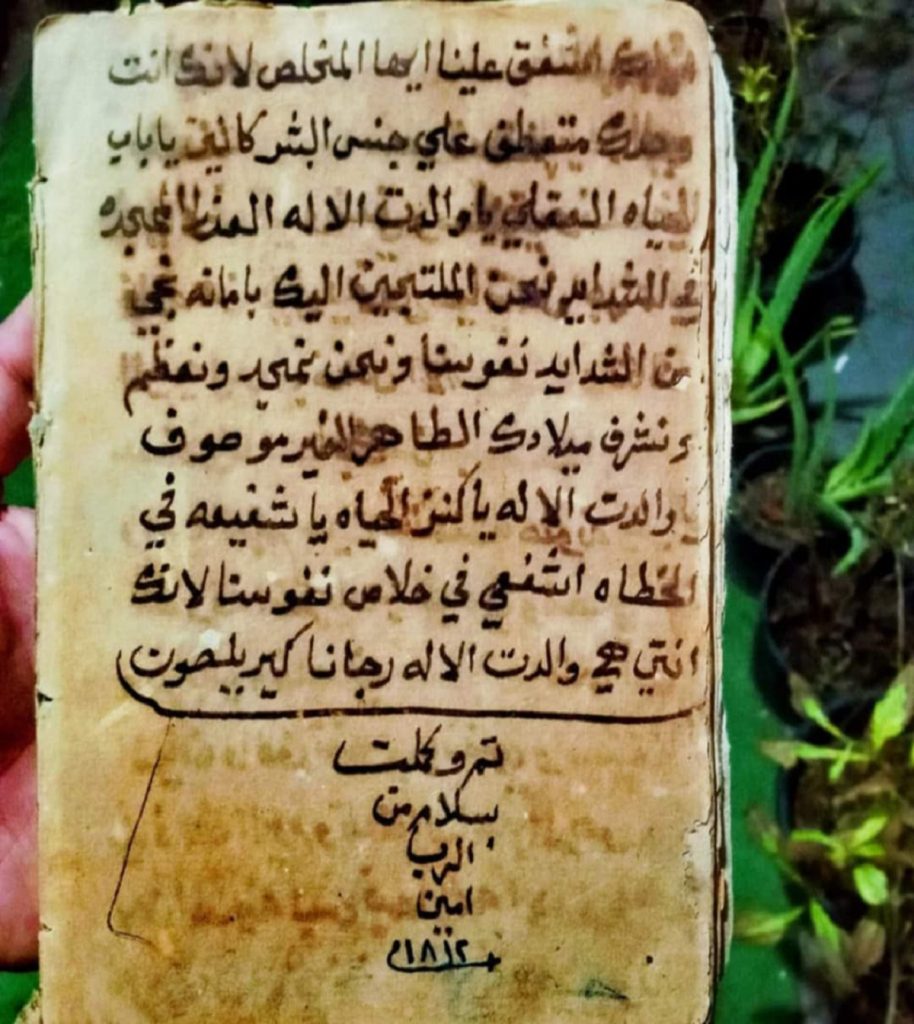 اشفق علينا ايها المخلص لانك انت
وحدك متعطف علي جنس البشر كالين ياباب
الحياه العقلي يا والدت الاله العذرا الممجده
في الشدايد نحن الملتجين اليك بامانه نجي
من الشدايد نفوسنا ونحن نمجد ونعظم
ونشرف ميلادك الطاهر الغير موصوف
يا والدت الاله ياكنز الحياه يا شفيعه في
الخطاه اشفعي في خلاص نفوسنا لانك
انتي هي والدت الاله رجانا كيريليصون
تم وكملت
بسلام من
الرب
امين